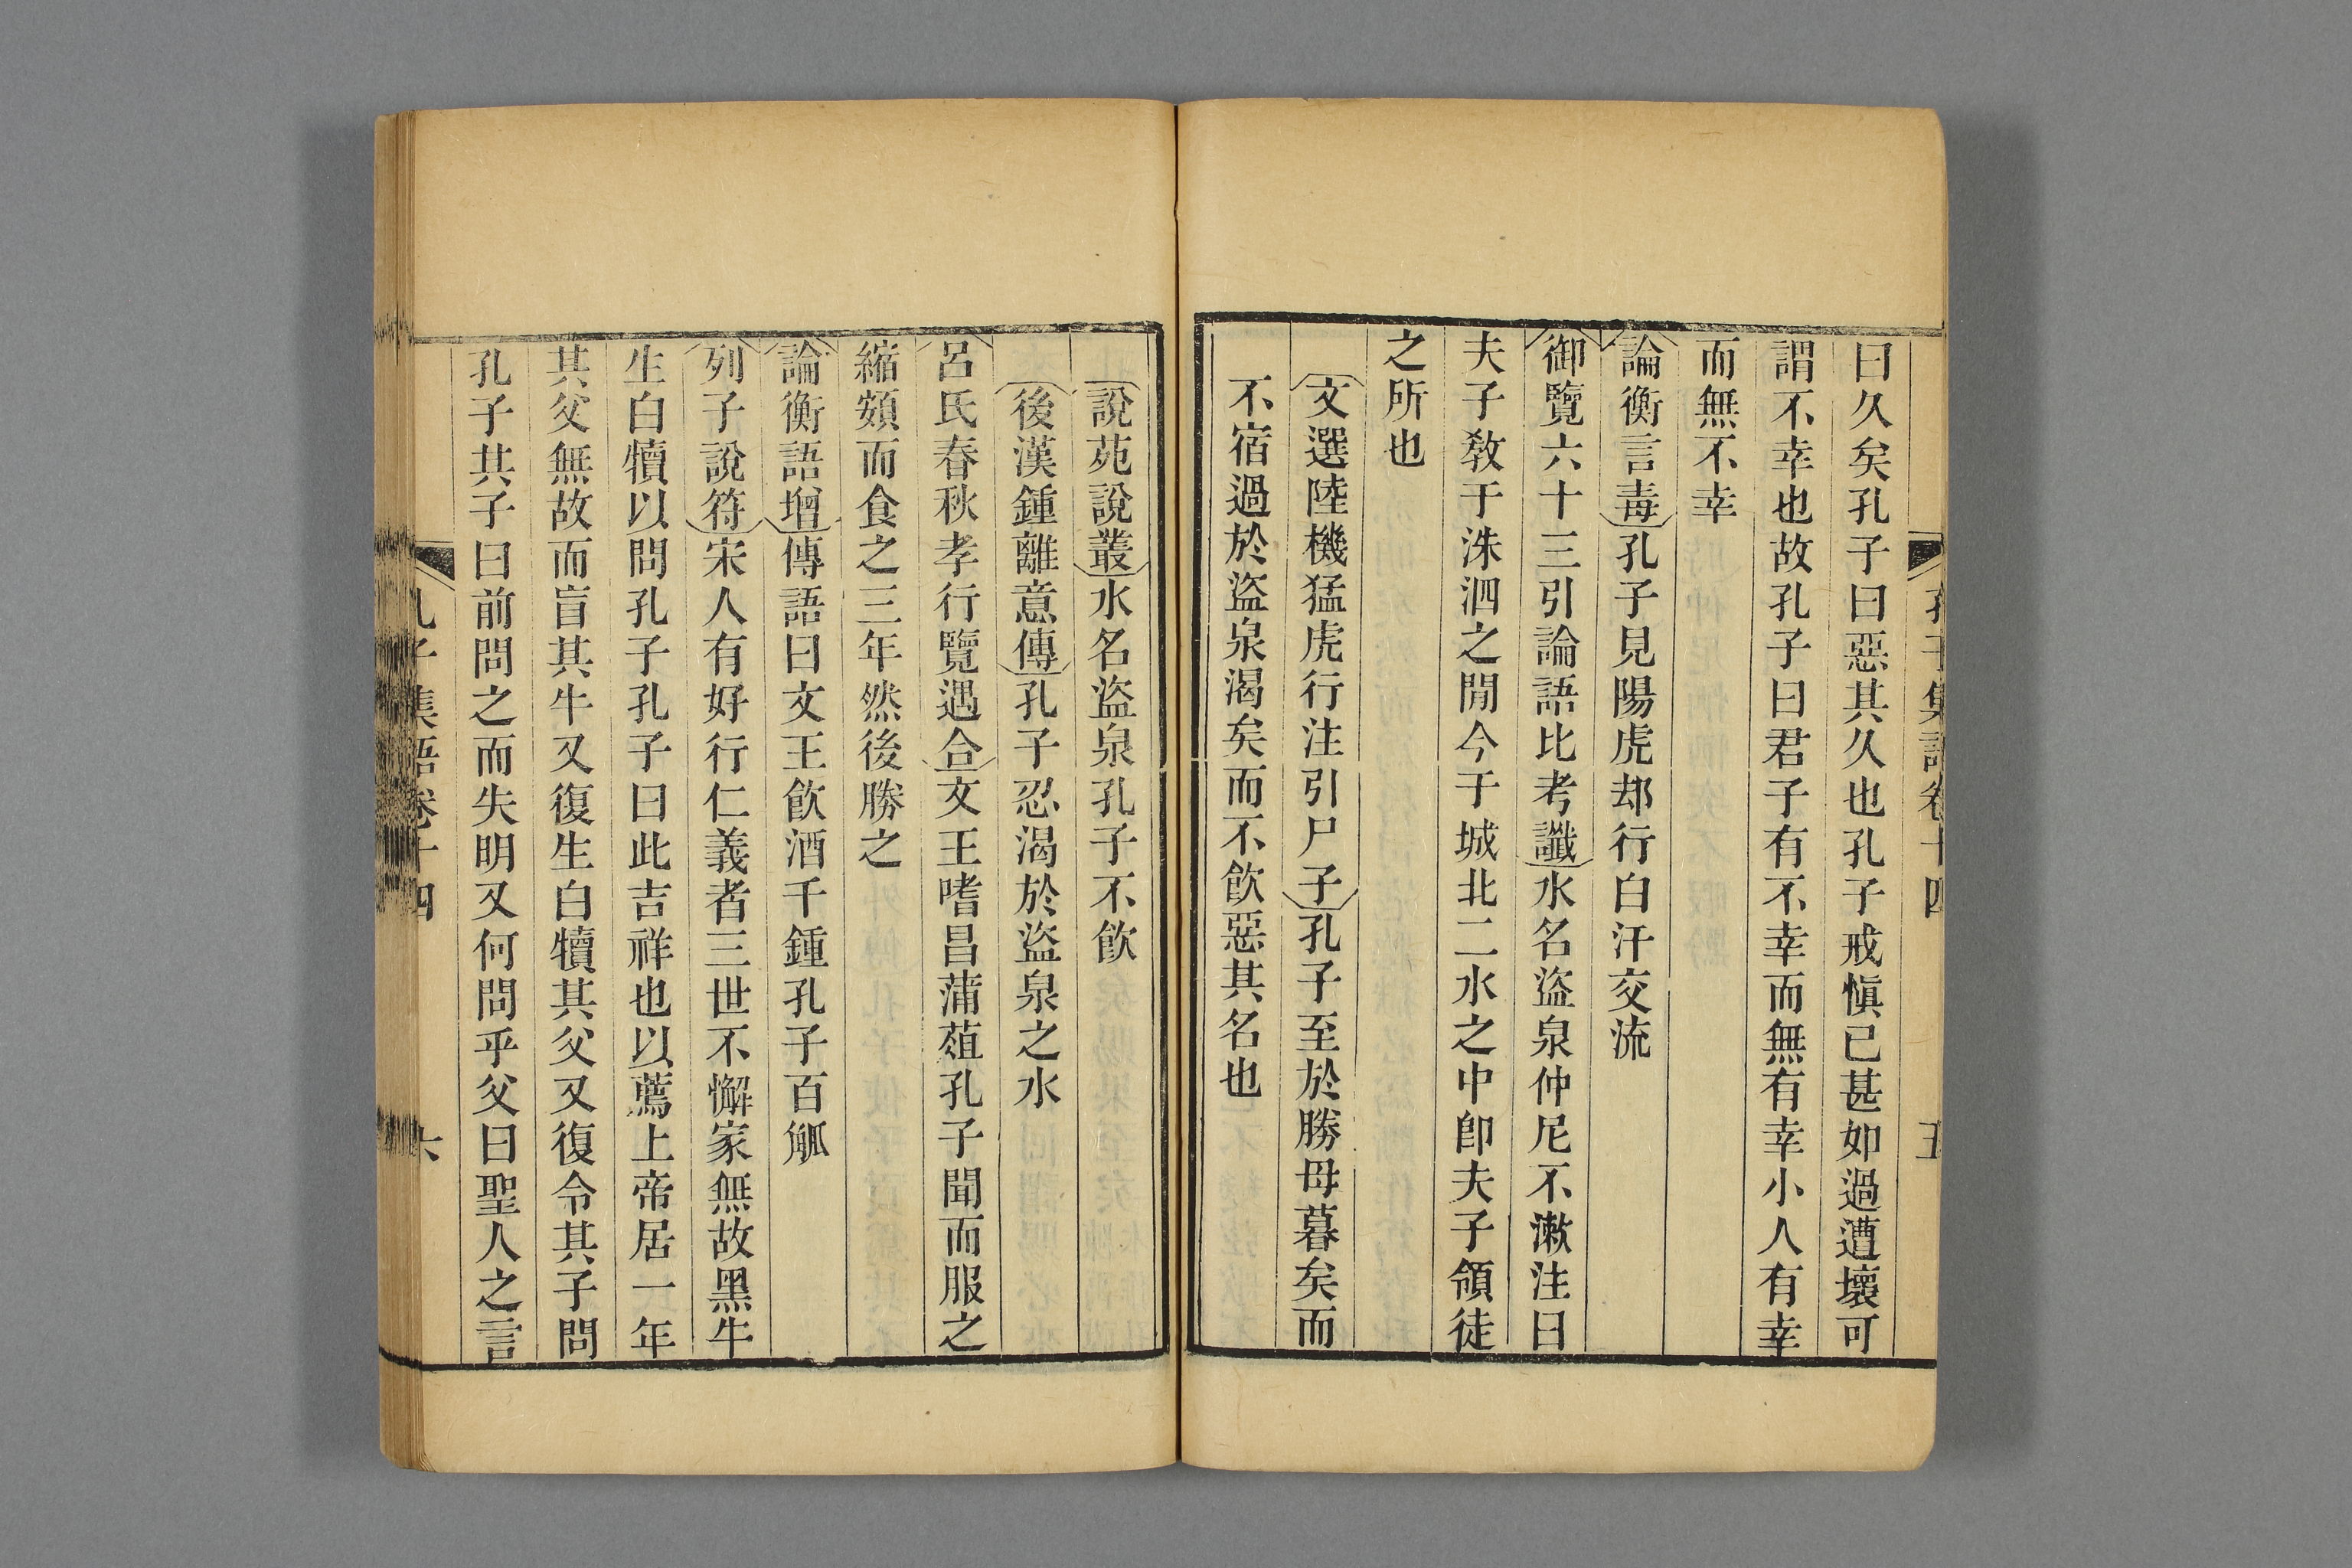 孔子集語卷十四 五
曰久矣孔子曰惡其久也孔子戒愼已甚如過遭壞可
謂不幸也故孔子曰君子有不幸而無有幸小人有幸
而無不幸
論衡言毒孔子見陽虎却行白汗交流
御覽六十三引論語比考讖水名盜泉仲尼不漱注曰
夫子敎于洙泗之閒今于城北二水之中卽夫子領徒
之所也
文選陸機猛虎行注引尸子孔子至於勝母暮矣而
不宿過於盜泉渴矣而不飮惡其名也
說苑說叢水名盜泉孔子不飮
後漢鍾離意傳孔子忍渴於盜泉之水
呂氏春秋孝行覽遇合文王嗜昌蒲葅孔子聞而服之
縮頞而食之三年然後勝之
論衡語增傳語曰文王飮酒千鍾孔子百觚
列子說符宋人有好行仁義者三世不懈家無故黑牛
生白犢以問孔子孔子曰此吉祥也以薦上帝居一年
其父無故而盲其牛又復生白犢其父又復令其子問
孔子其子曰前問之而失明又何問乎父曰聖人之言
孔子集語卷十四 六